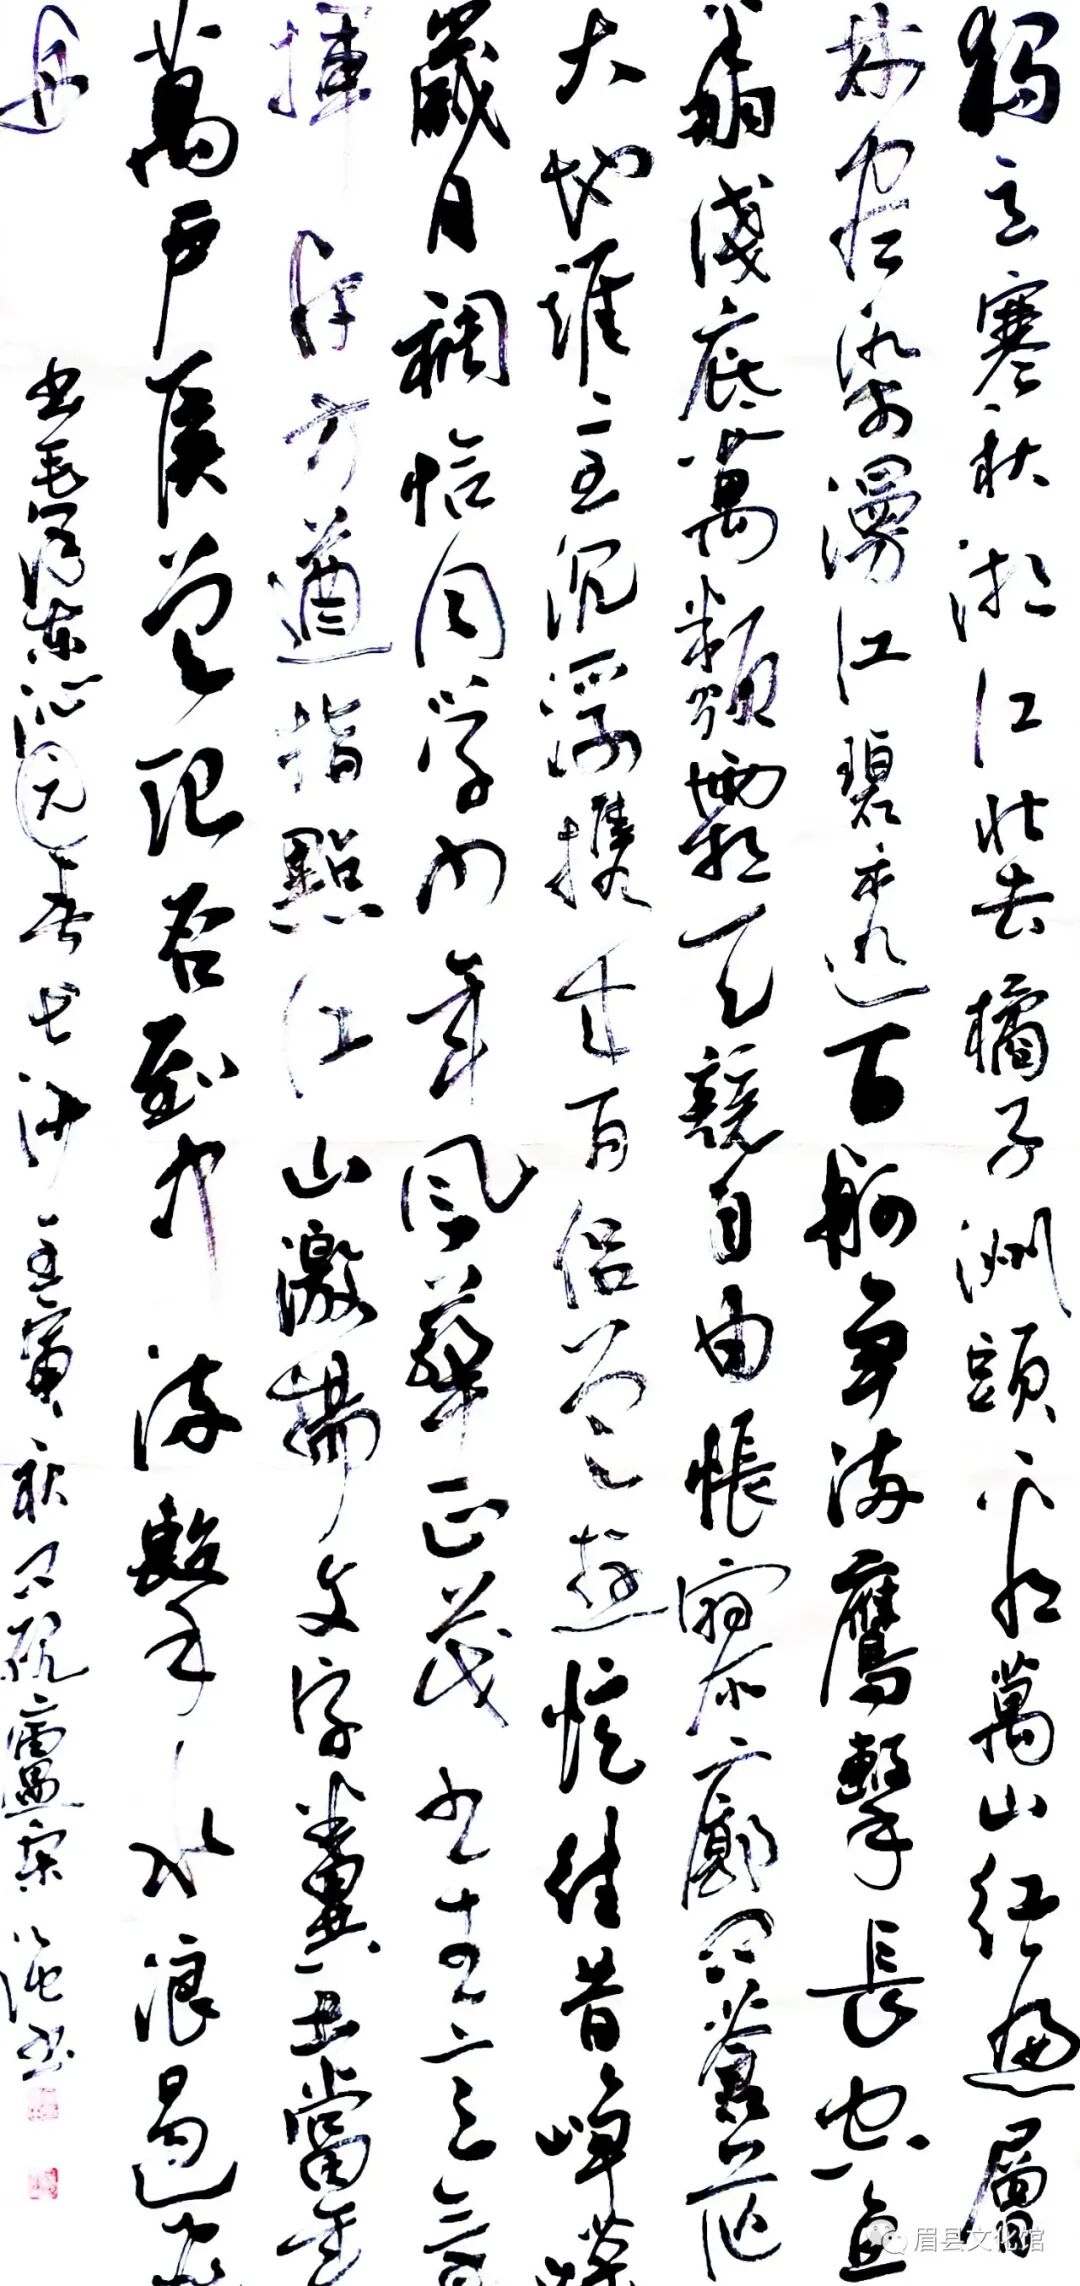 獨立寒秋湘江北去橘子洲頭看萬山紅遍層
林盡染漫江碧透百舸爭流鷹擊長空魚
翔淺底萬類霜天競自由悵寥廓問蒼茫
大地誰主沉浮攜來百侣曾遊憶往昔崢嶸
歲月稠恰同學少年風華正茂書生意氣
揮斥方遒指點江山激揚文字糞土當年
萬户侯曾記否到中流擊水浪遏飛
舟
書毛澤東沁園春長沙壬寅秋
眉县文化馆